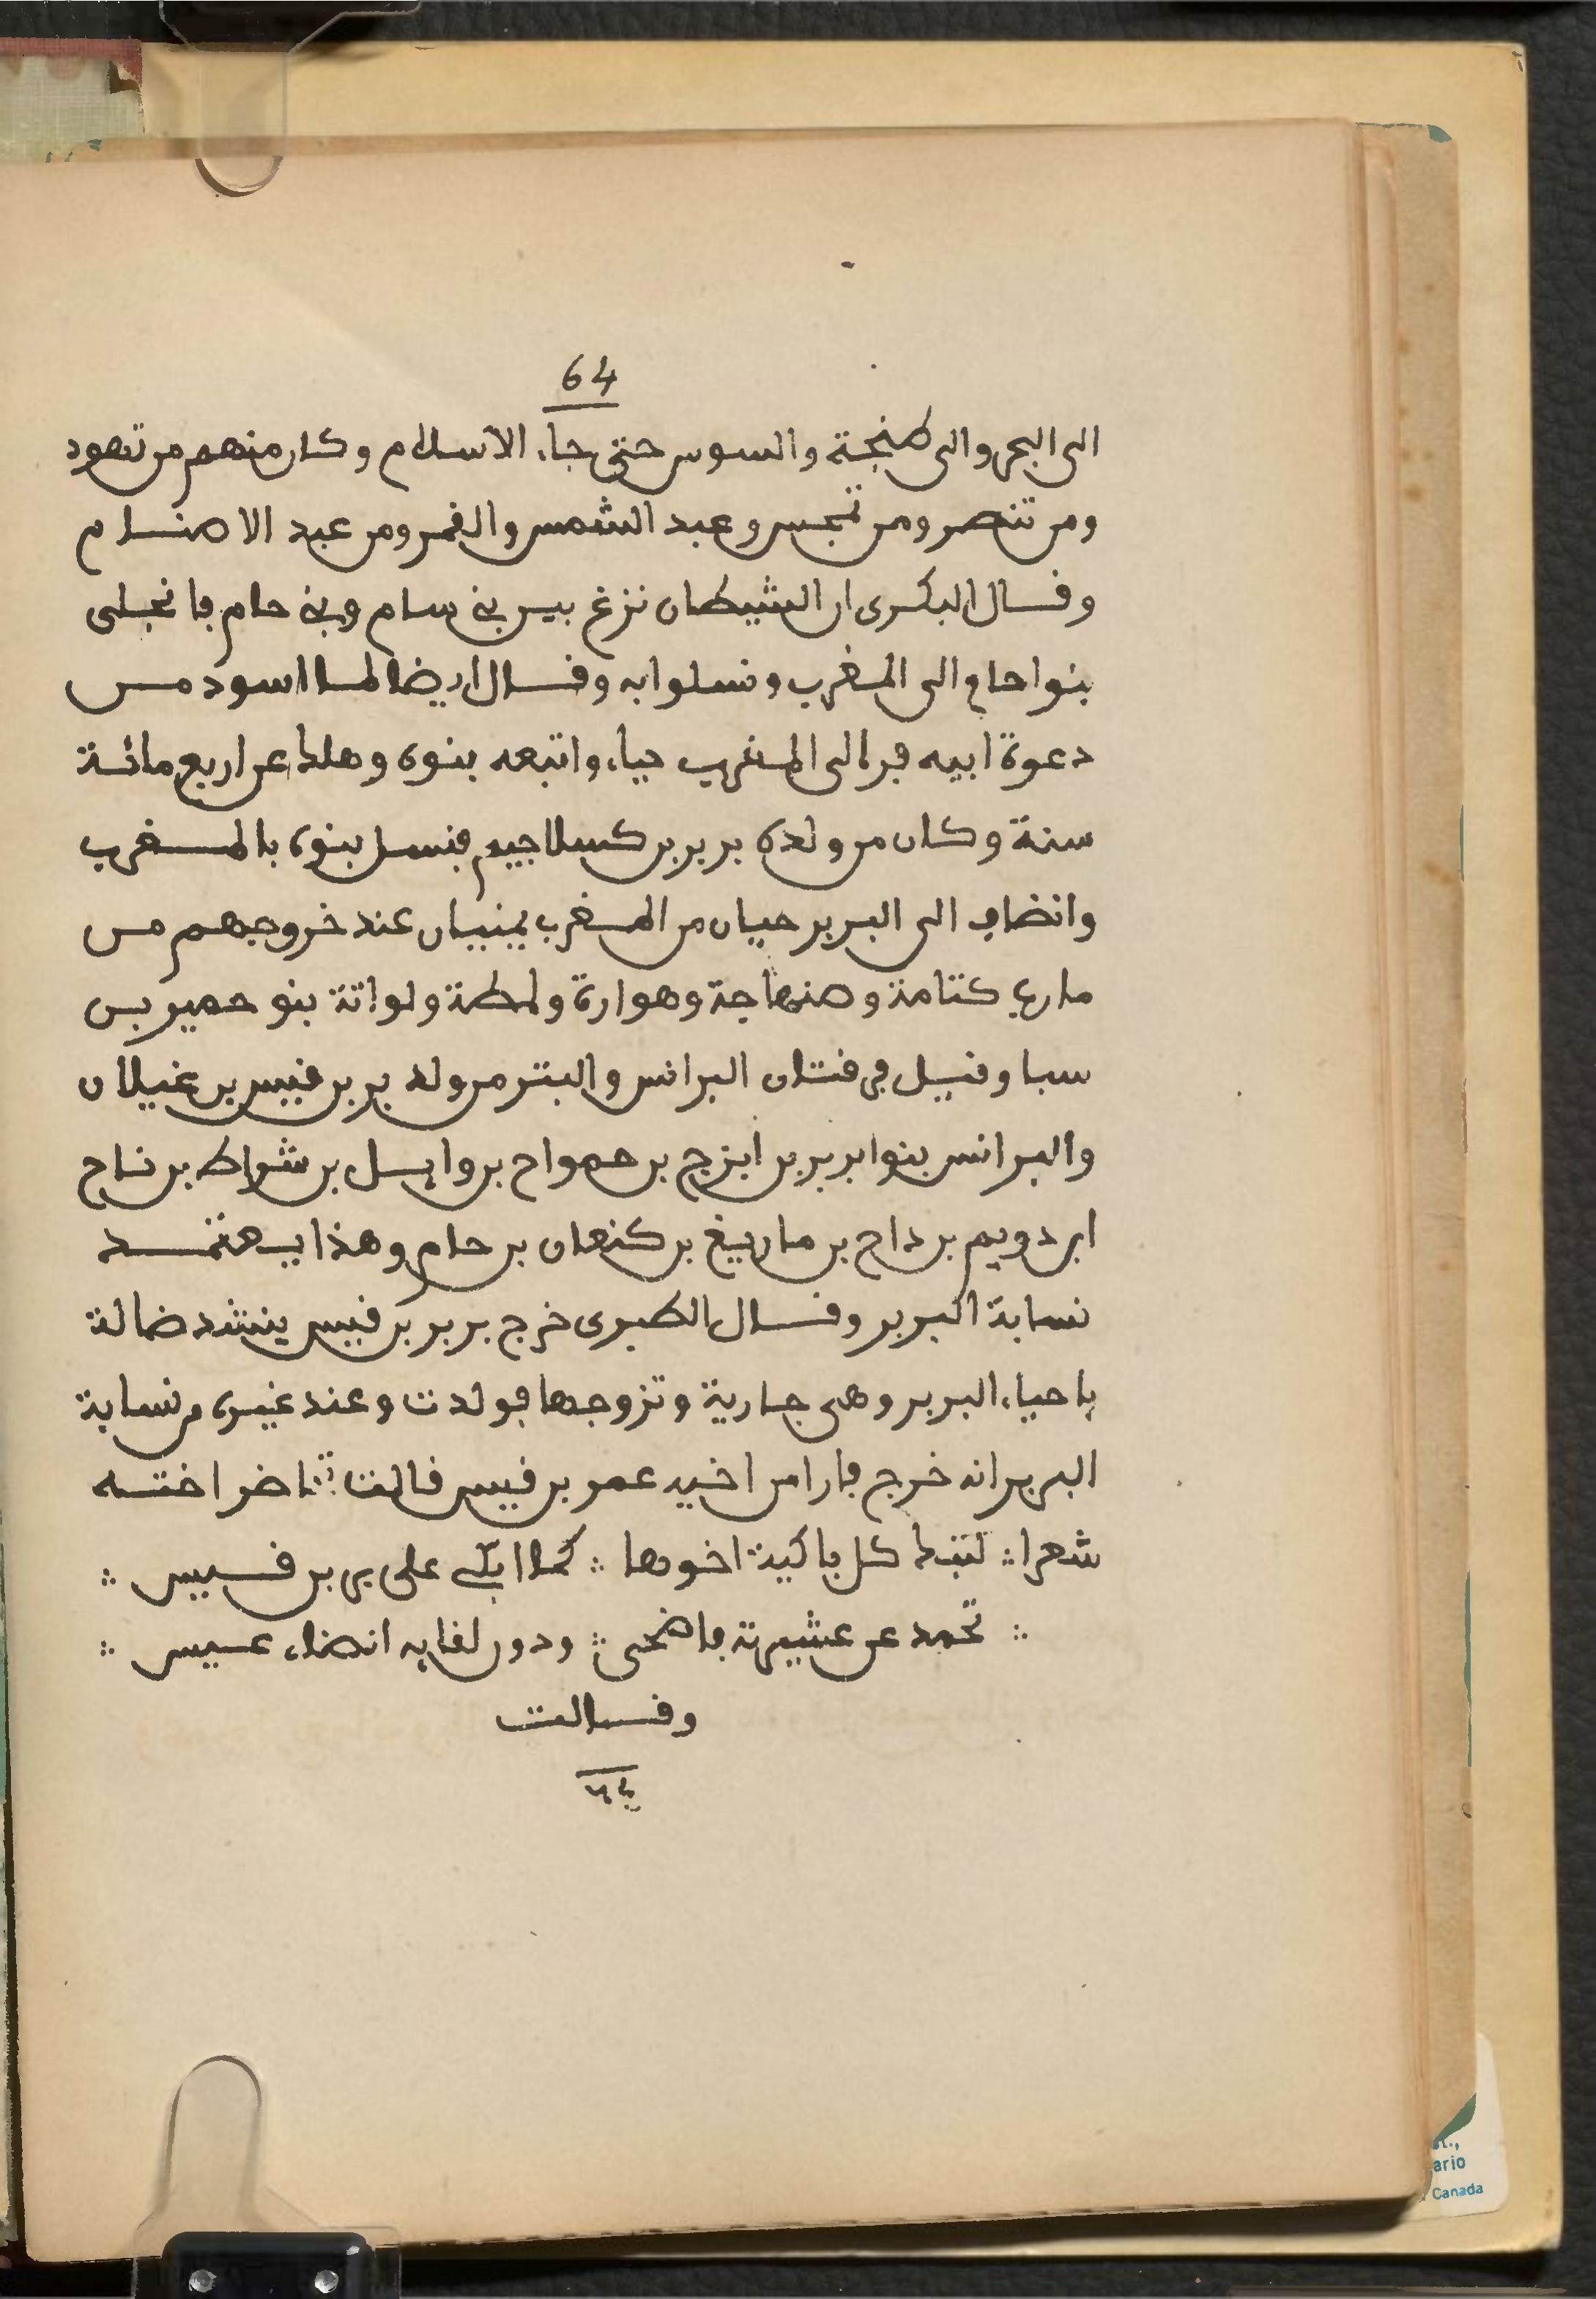 64
الى البحر والى طنجة والسوس حتى جاء الاسلام وكان منهم من تهود
ومن تنصر ومن تمجس وعبد الشمس والقمر ومن عبد الاصنام
وقال البكرى ان الشيطان نزغ بين بنى سام وبنى حام فانجلى
بنوا حام الى المغرب ونسلوا به وقال ايضا لما اسود من
دعوة ابيه فر الى المغرب حياء واتبعه بنوه وهلك عن اربع مائة
سنة وكان من ولده بربر بن كسلاجيم فنسل بنوه بالمغرب
وانضاف الى البربر حيان من المغرب يمنيان عند خروجهم من
مارب كتامة وصنهاجة وهوارة ولمطة ولواتة بنو حمير بن
سبا وقيل فى قتلان البرانس والبتر من ولد بر بن قيس بن غيلان
والبرانس بنوا بربر بن ابزج بن حمواح بن وايل بن شراط بن ناح
ابن دويم بن داح بن ماريغ بن كنعان بن حام وهذا يعتمد
نسابة البربر وقال الطبرى خرج بربر بن قيس ينشد ضالة
باحياء البربر وهى جارية وتزوجها فولدت وعند غيره من نسابة
البربر انه خرج فارا من اخيه عمر بن قيس قالت تماضر اخته
شعرا ∴ لتبك كل باكية اخوها ∴ كما ابكى على بر بن قيس ∴
∴ تحمد عن عشيرته فاضحى ∴ ودون لقايه انضاء عيس ∴
وقالت
٦٤